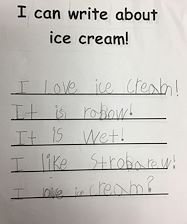 I can write about
ice cream!
I love ice cream!
It is rabow!
It is wet!
I like Strobarew!
I ice cream?